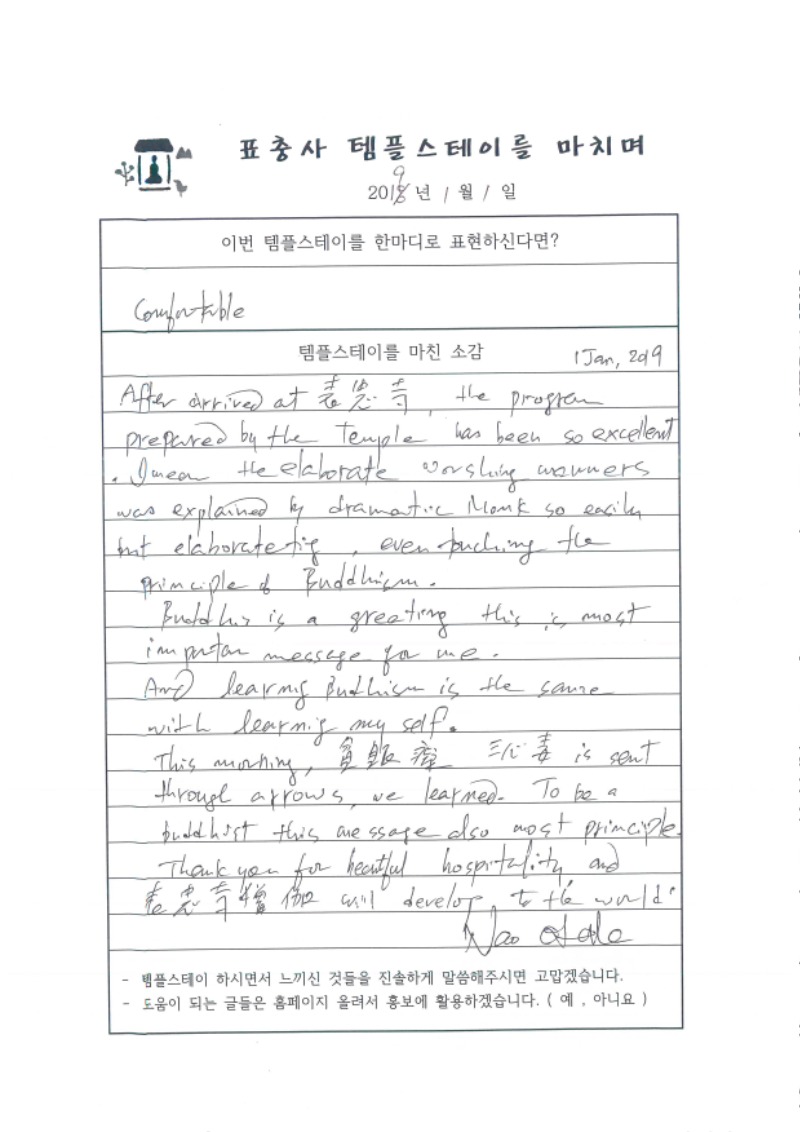 표충사 템플스테이를 마치며
2019년 1월 1일
이번 템플스테이를 한마디로 표현하신다면?
Comfortable
템플스테이를 마친 소감 1 Jan, 2019
After arrived at 表忠寺, the program
prepared by the Temple has been so excellent
. I mean the elaborate manners
was explained by dramatic Monk so easily
but, even touching the
principle of Buddhism.
is a greeting this is most
important message for me.
And learning Buddhism is the same
with learning my self.
This morning, 三心毒 is sent
through arrows, we learned. To be a
buddhist this message also most principle.
Thank you for beautiful hospitality and
表忠寺 僧伽 will develop to the world.
- 템플스테이 하시면서 느끼신 것들을 진솔하게 말씀해주시면 고맙겠습니다.
- 도움이 되는 글들은 홈페이지 올려서 홍보에 활용하겠습니다. ( 예 , 아니요 )